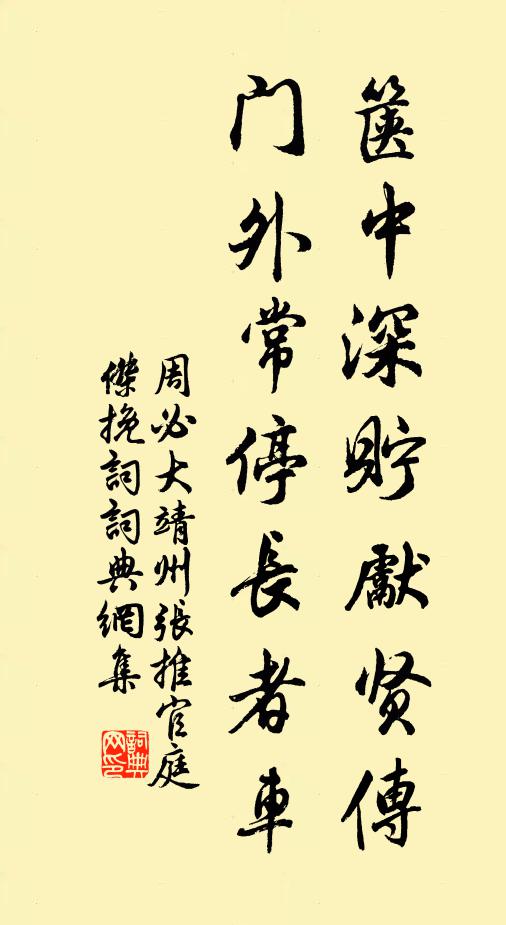 箧中深貯獻贤傳
门外常停長者車
周必大靖州张推官庭
傑挽詞詞典網集
詞典网印